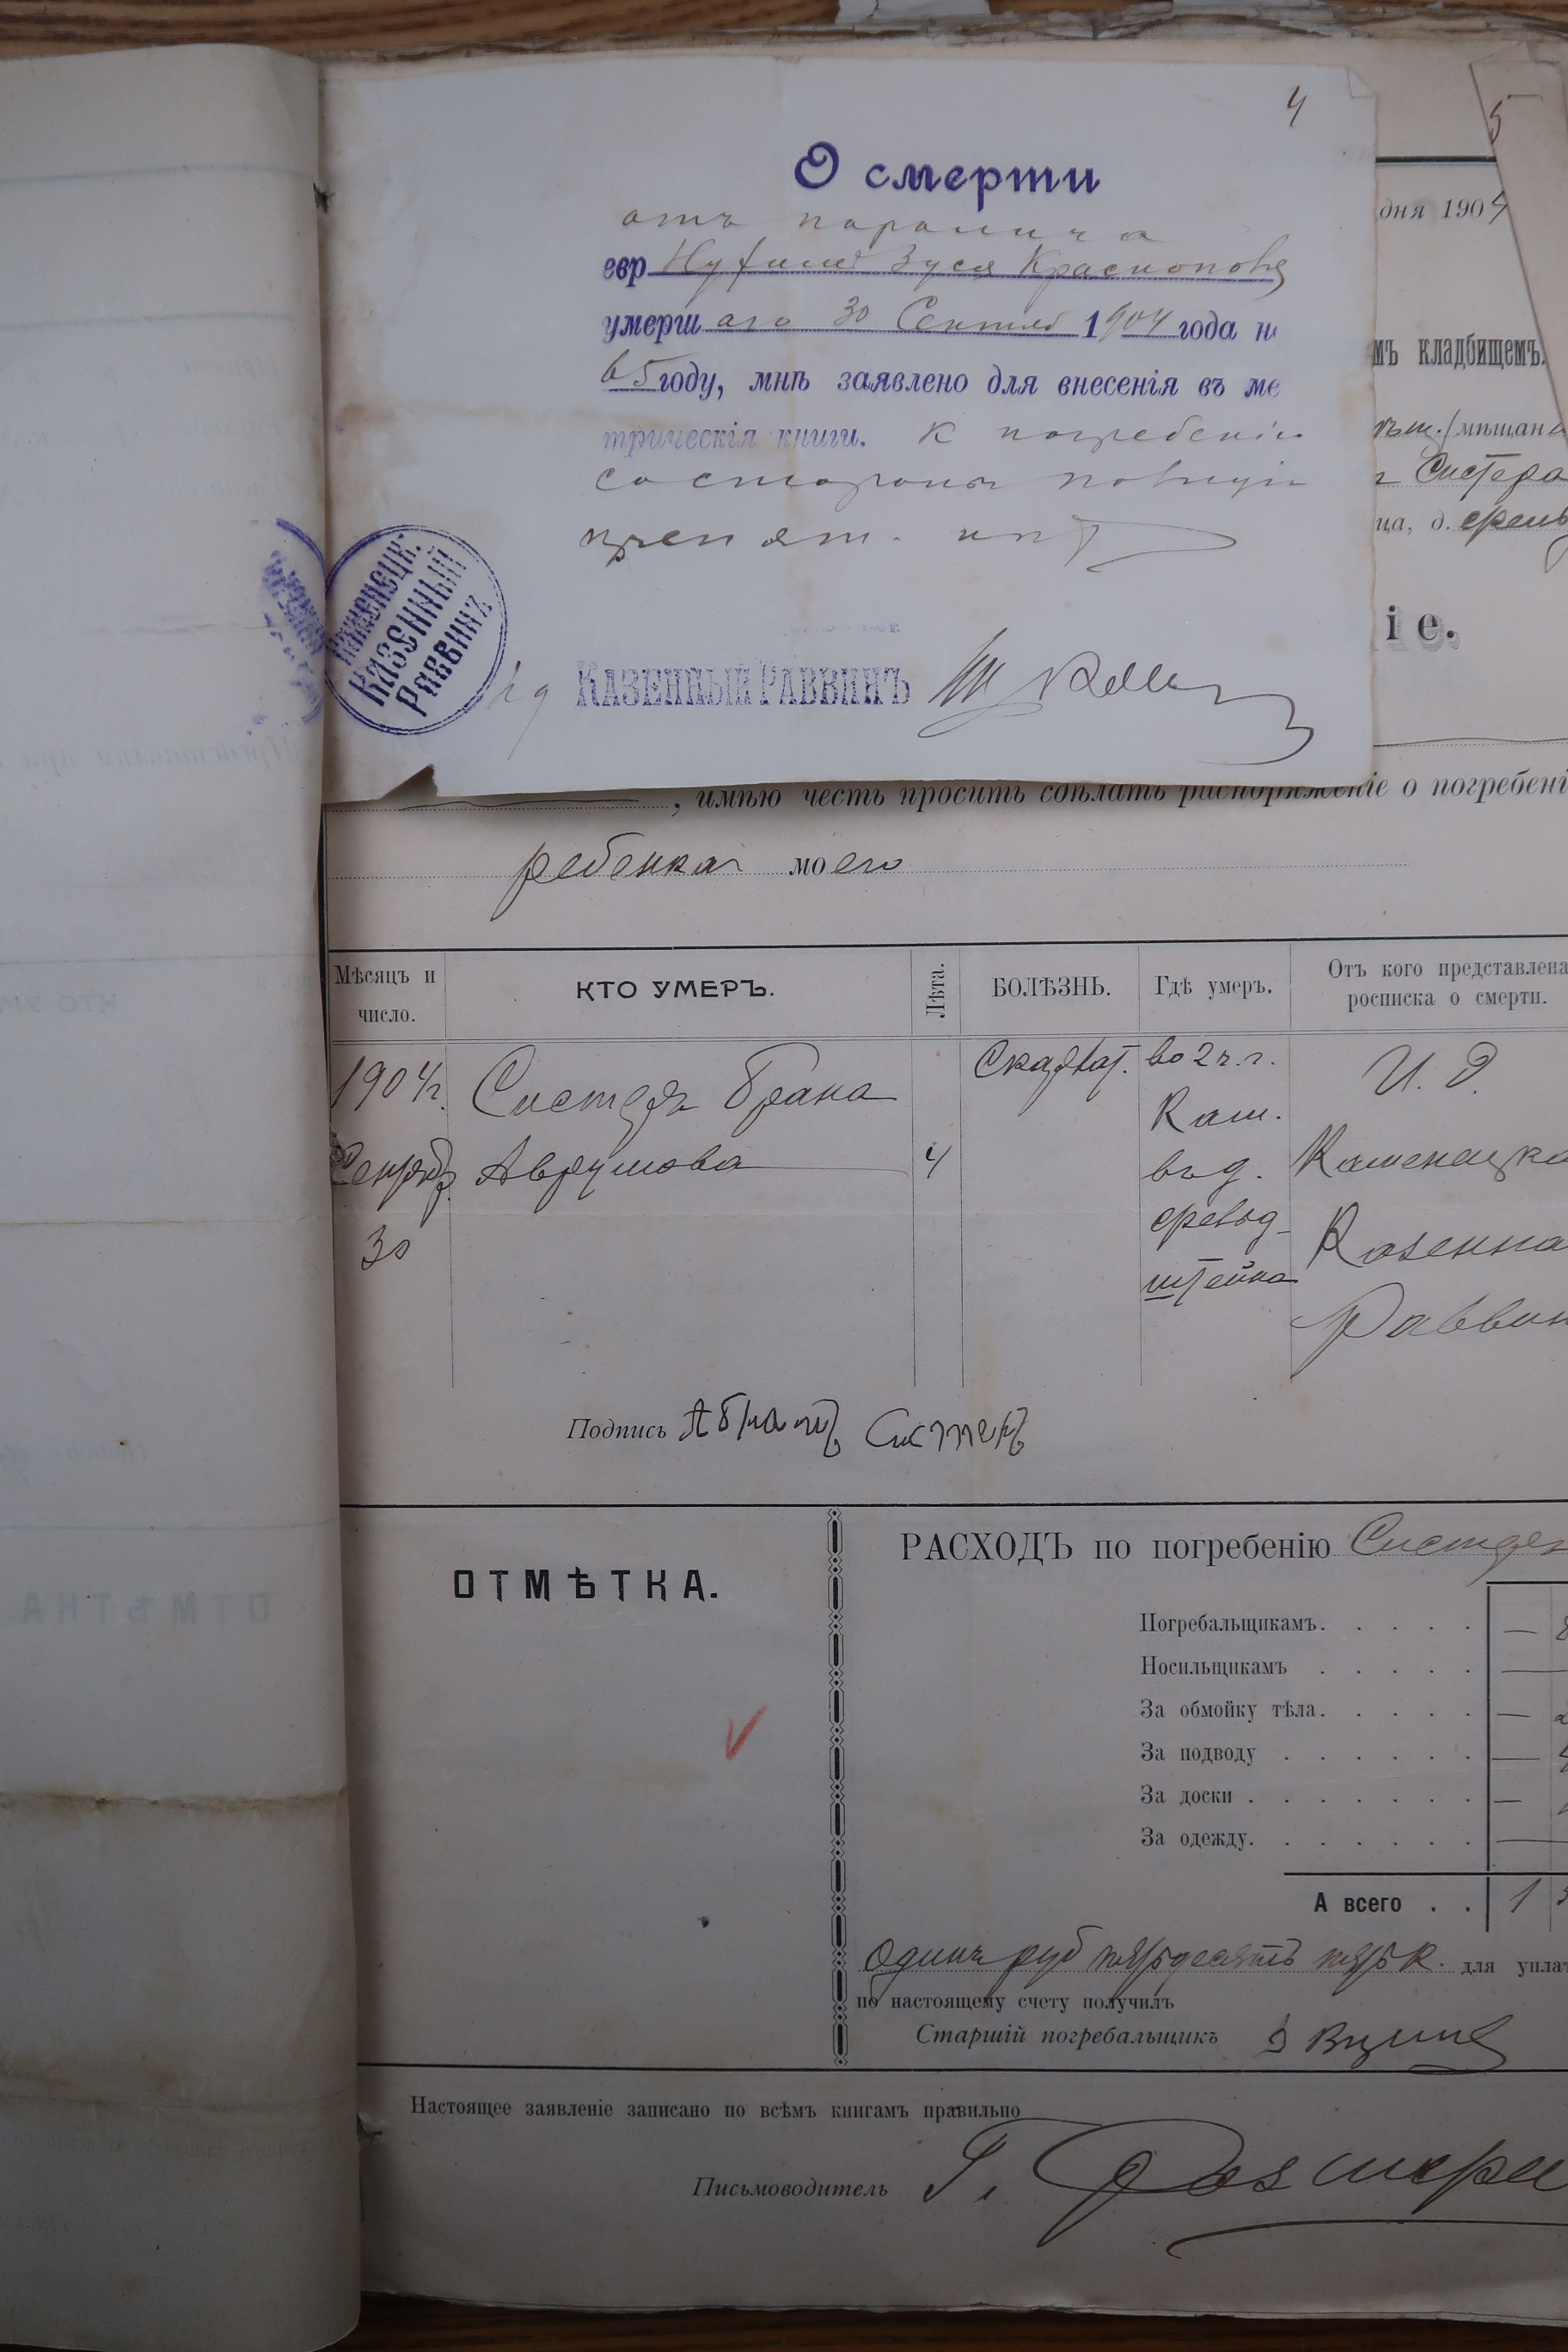 4
5
О смерти
отъ паралича
евр Нухимъ Зуся Краснополь
умерш аго 30 Сентяб 1904 года н
65 году, мнѣ заявлено для внесенія въ ме
трическія книги. К погребенію
со стороны полиціи
препят. нѣтъ
Каменецк.
Казенный
Раввинъ
КАЗЕННЫЙ РАВВИНЪ
дня 1904
мъ кладбищемъ.
мѣщан
Систера
ца, д.
іе.
, имѣю честь просить сдѣлать распоряженіе о погребені
ребенка моего
Мѣсяцъ и число.
КТО УМЕРЪ.
Лѣта.
БОЛѢЗНЬ.
Гдѣ умеръ.
Отъ кого представлена росписка о смерти.
1904г.
Сентяб.
30
Систеръ Брана
Аврумова
4
Скарлат.
во 2 ч. г.
Кам.
въ д.
штейна
И. Д.
Каменецка
Казенна
Раввин
Подпись Абрамъ Систеръ
ОТМѢТКА.
РАСХОДЪ по погребенію Систер
Погребальщикамъ. . . . . —
Носильщикамъ . . . . . —
За обмойку тѣла. . . . . —
За подводу . . . . . . —
За доски . . . . . . . —
За одежду. . . . . . . —
А всего . . 1
Одинъ руб пятьдесятъ пять к. для упла
по настоящему счету получилъ
Старшій погребальщикъ
Настоящее заявленіе записано по всѣмъ книгамъ правильно
Письмоводитель Г.